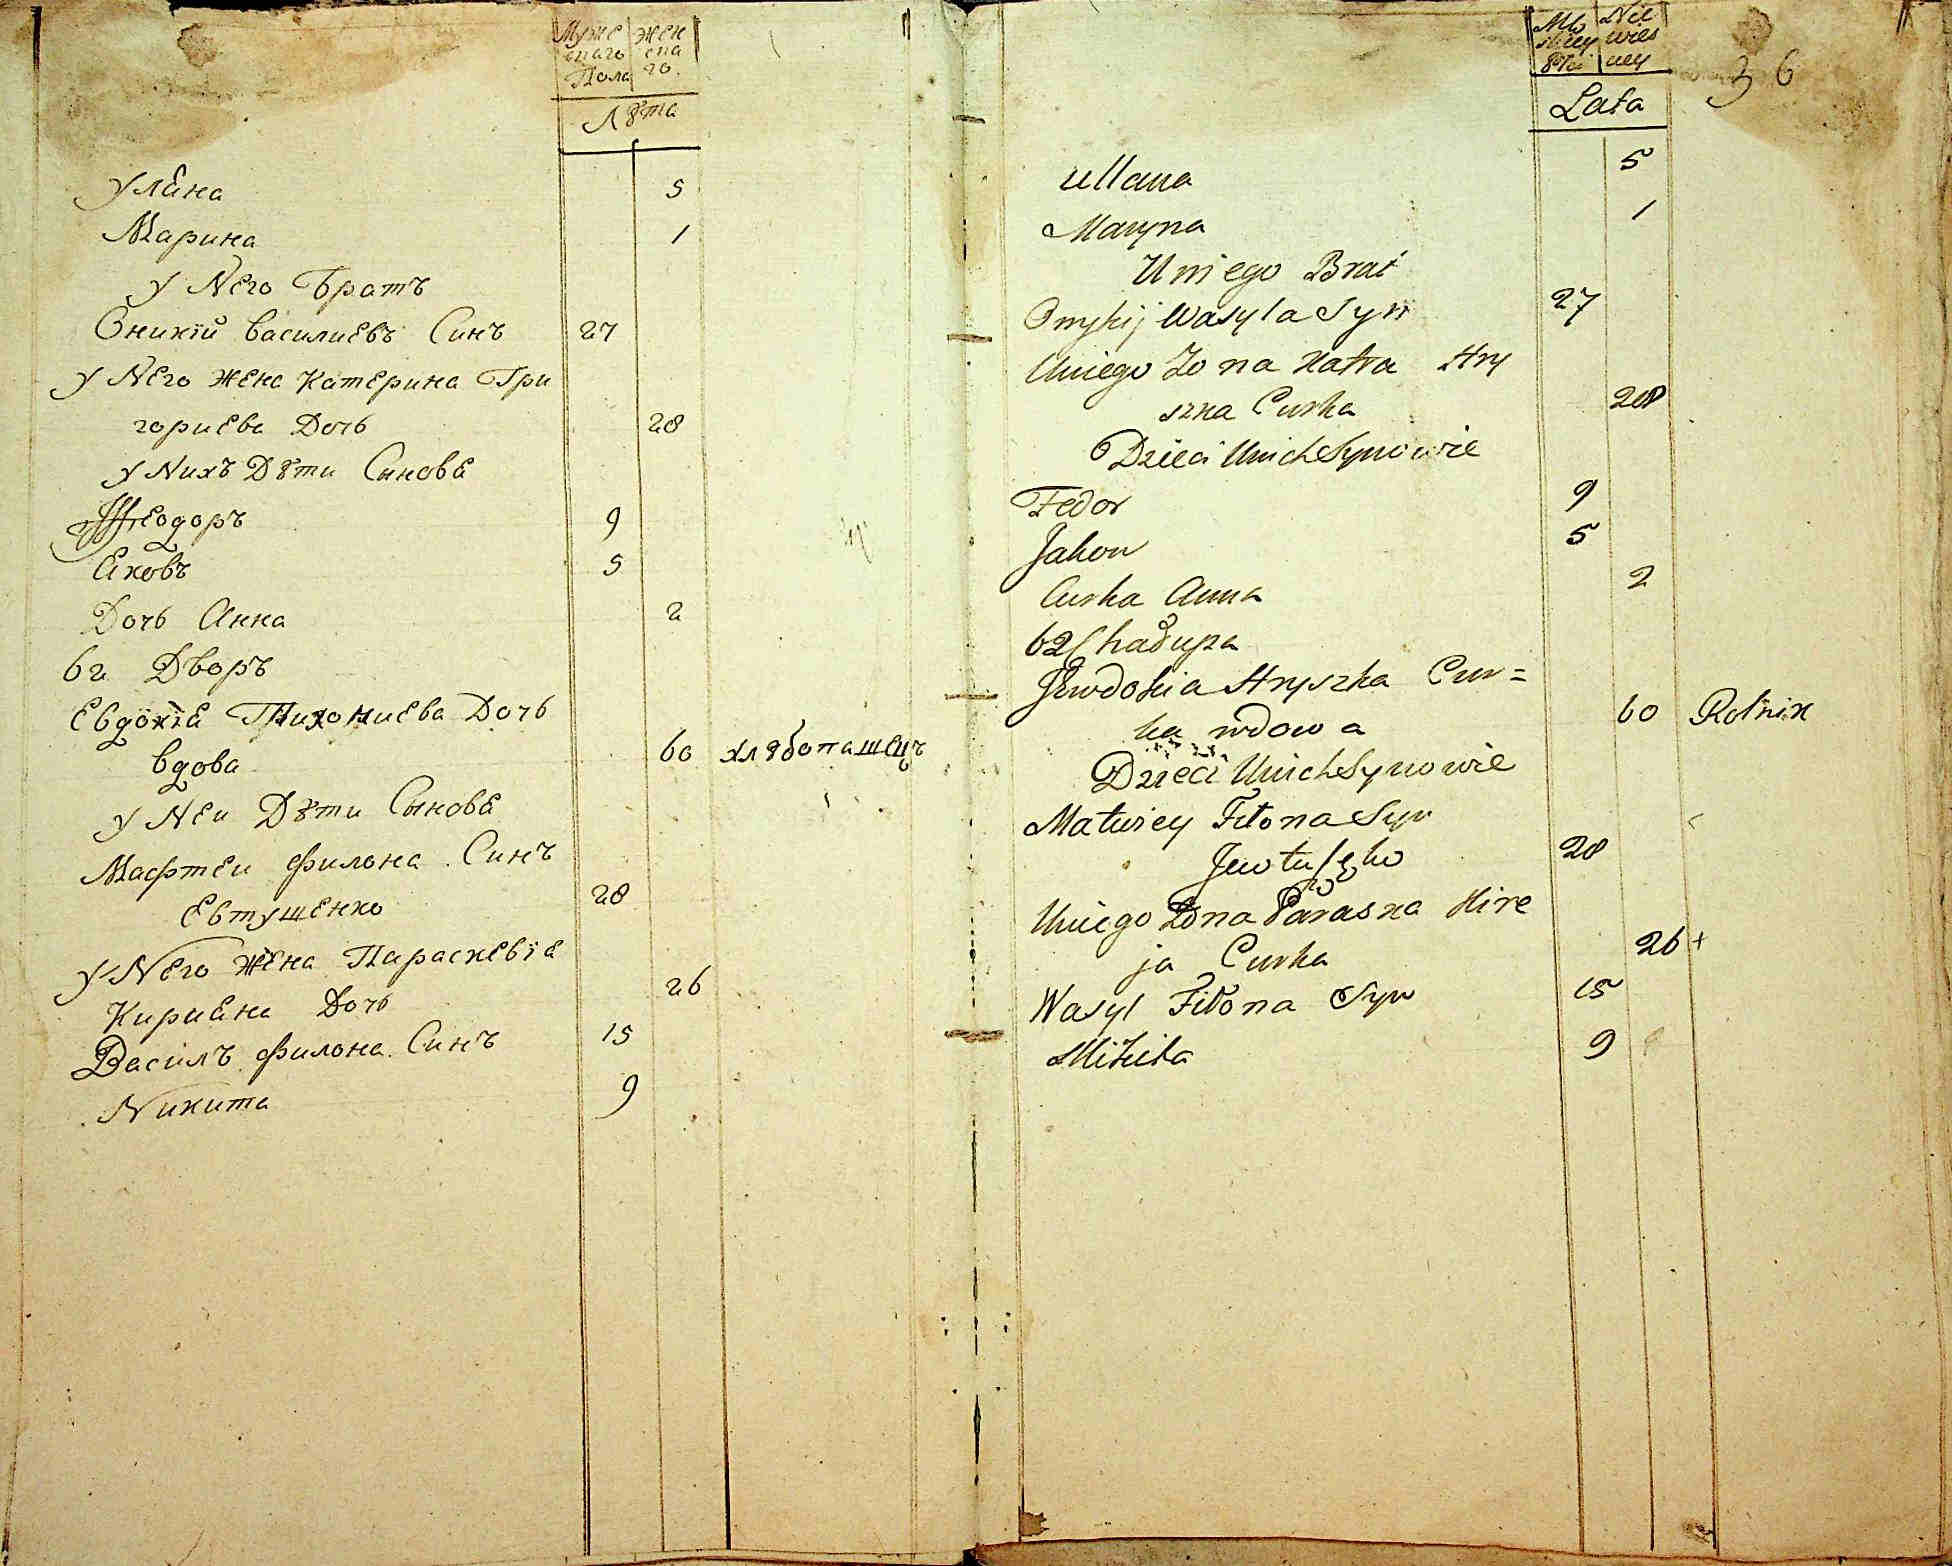 Муже Жен
скаго ска
Пола го.
Лѣта
Уляна 5
Марина 1
У Него Братъ
Оникій василиевъ Синъ 27
У Него жена Катерина Гри
гориева Дочь 28
У Нихъ Дѣти Синовя
Ѳеодоръ 9
Яковъ 5
Дочь Анна 2
62 Дворъ
Евдокія Тихониева Дочь
вдова 60 хлѣбопашецъ
У Неи Дѣти Сыновя
Мафтеи Филона Синъ
Евтушенко 28
У Него Жена Параскевія
Кирияна Дочь 26
Василъ Филона Синъ 15
Никита 9
36
Lata
Ullana 5
Maryna 1
U niego Brat
Onykij Wasyla Syn 27
Uniego Zona Katra Hry
szka Curka 28
Dzieci Unich Synowie
Fedor 9
Jakow 5
Curka Anna 2
62 Chałupa
Jewdokia Hryszka Cur=
ka wdowa 60 Rolnik
Dzieci Unich Synowie
Matwiey Fiłona Syn
28
Uniego Zona Paraska Kire
ja Curka 26 +
Wasyl Fiłona Syn 15
Mikita 9